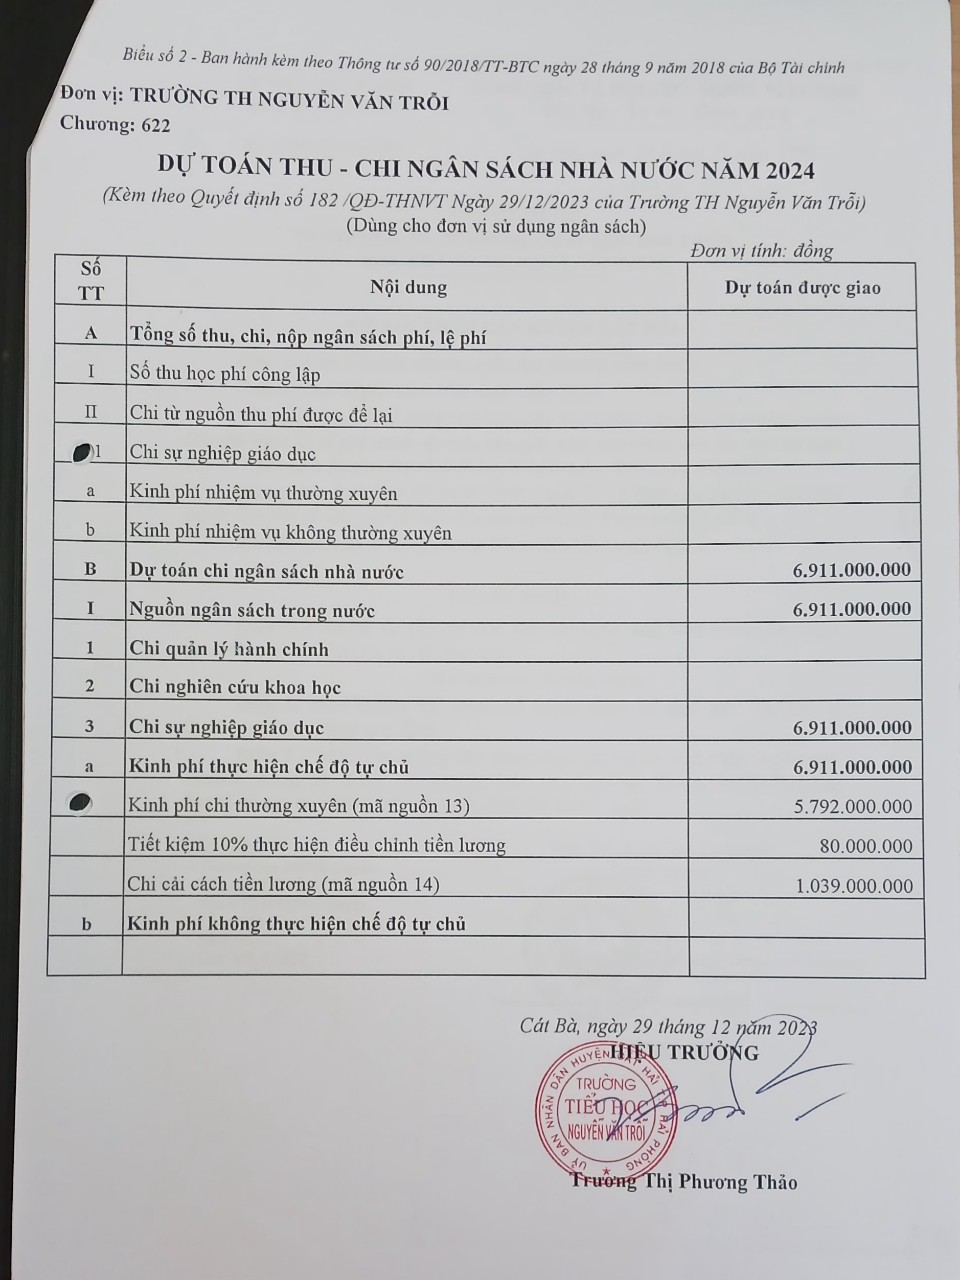 Biểu số 2 - Ban hành kèm theo Thông tư số 90/2018/TT-BTC ngày 28 tháng 9 năm 2018 của Bộ Tài chính
Đơn vị: TRƯỜNG TH NGUYỄN VĂN TRỖI
Chương: 622
DỰ TOÁN THU - CHI NGÂN SÁCH NHÀ NƯỚC NĂM 2024
(Kèm theo Quyết định số 182 /QĐ-THNVT Ngày 29/12/2023 của Trường TH Nguyễn Văn Trỗi)
(Dùng cho đơn vị sử dụng ngân sách)
Đơn vị tính: đồng
Số TT Nội dung Dự toán được giao
A Tổng số thu, chi, nộp ngân sách phí, lệ phí
I Số thu học phí công lập
II Chi từ nguồn thu phí được để lại
1 Chi sự nghiệp giáo dục
a Kinh phí nhiệm vụ thường xuyên
b Kinh phí nhiệm vụ không thường xuyên
B Dự toán chi ngân sách nhà nước 6.911.000.000
I Nguồn ngân sách trong nước 6.911.000.000
1 Chi quản lý hành chính
2 Chi nghiên cứu khoa học
3 Chi sự nghiệp giáo dục 6.911.000.000
a Kinh phí thực hiện chế độ tự chủ 6.911.000.000
Kinh phí chi thường xuyên (mã nguồn 13) 5.792.000.000
Tiết kiệm 10% thực hiện điều chỉnh tiền lương 80.000.000
Chi cải cách tiền lương (mã nguồn 14) 1.039.000.000
b Kinh phí không thực hiện chế độ tự chủ
Cát Bà, ngày 29 tháng 12 năm 2023
HIỆU TRƯỞNG
ỦY BAN NHÂN DÂN HUYỆN CÁT HẢI T.P HẢI PHÒNG
TRƯỜNG
TIỂU HỌC
NGUYỄN VĂN TRỖI
Trương Thị Phương Thảo